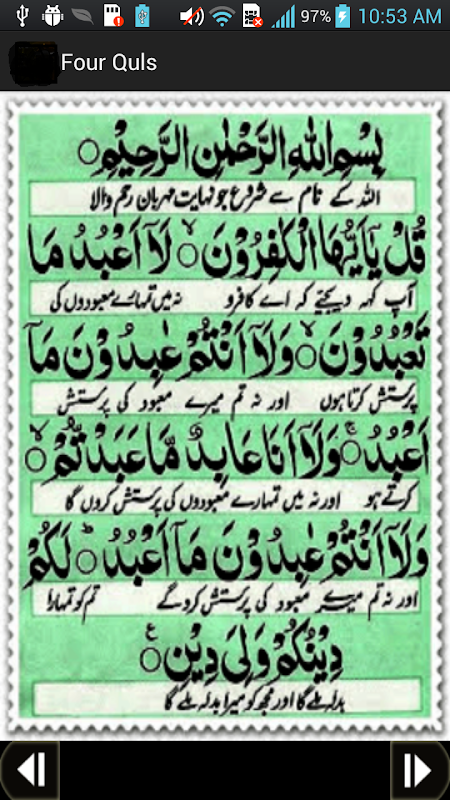 97% 10:53 AM
Four Quls
بِسْمِ اللّٰهِ الرَّحْمٰنِ الرَّحِيْمِ ○
اللہ کے نام سے شروع جو نہایت مہربان رحم والا
قُلْ يٰۤاَيُّهَا الْكٰفِرُوْنَ ○ۙ لَاۤ اَعْبُدُ مَا
آپ کہہ دیجئے کہ اے کافرو نہ میں تمہارے معبودوں کی
تَعْبُدُوْنَ ○ۙ وَلَاۤ اَنْتُمْ عٰبِدُوْنَ مَاۤ
پرستش کرتا ہوں اور نہ تم میرے معبود کی پرستش
اَعْبُدُ ○ۚ وَلَاۤ اَنَا عَابِدٌ مَّا عَبَدْتُّمْ ○ۙ
کرتے ہو اور نہ میں تمہارے معبودوں کی پرستش کروں گا
وَلَاۤ اَنْتُمْ عٰبِدُوْنَ مَاۤ اَعْبُدُ ○ؕ لَكُمْ
اور نہ تم میرے معبود کی پرستش کروگے تم کو تمہارا
دِيْنُكُمْ وَلِيَ دِيْنِ ○ع
بدلہ ملے گا اور مجھ کو میرا بدلہ ملے گا